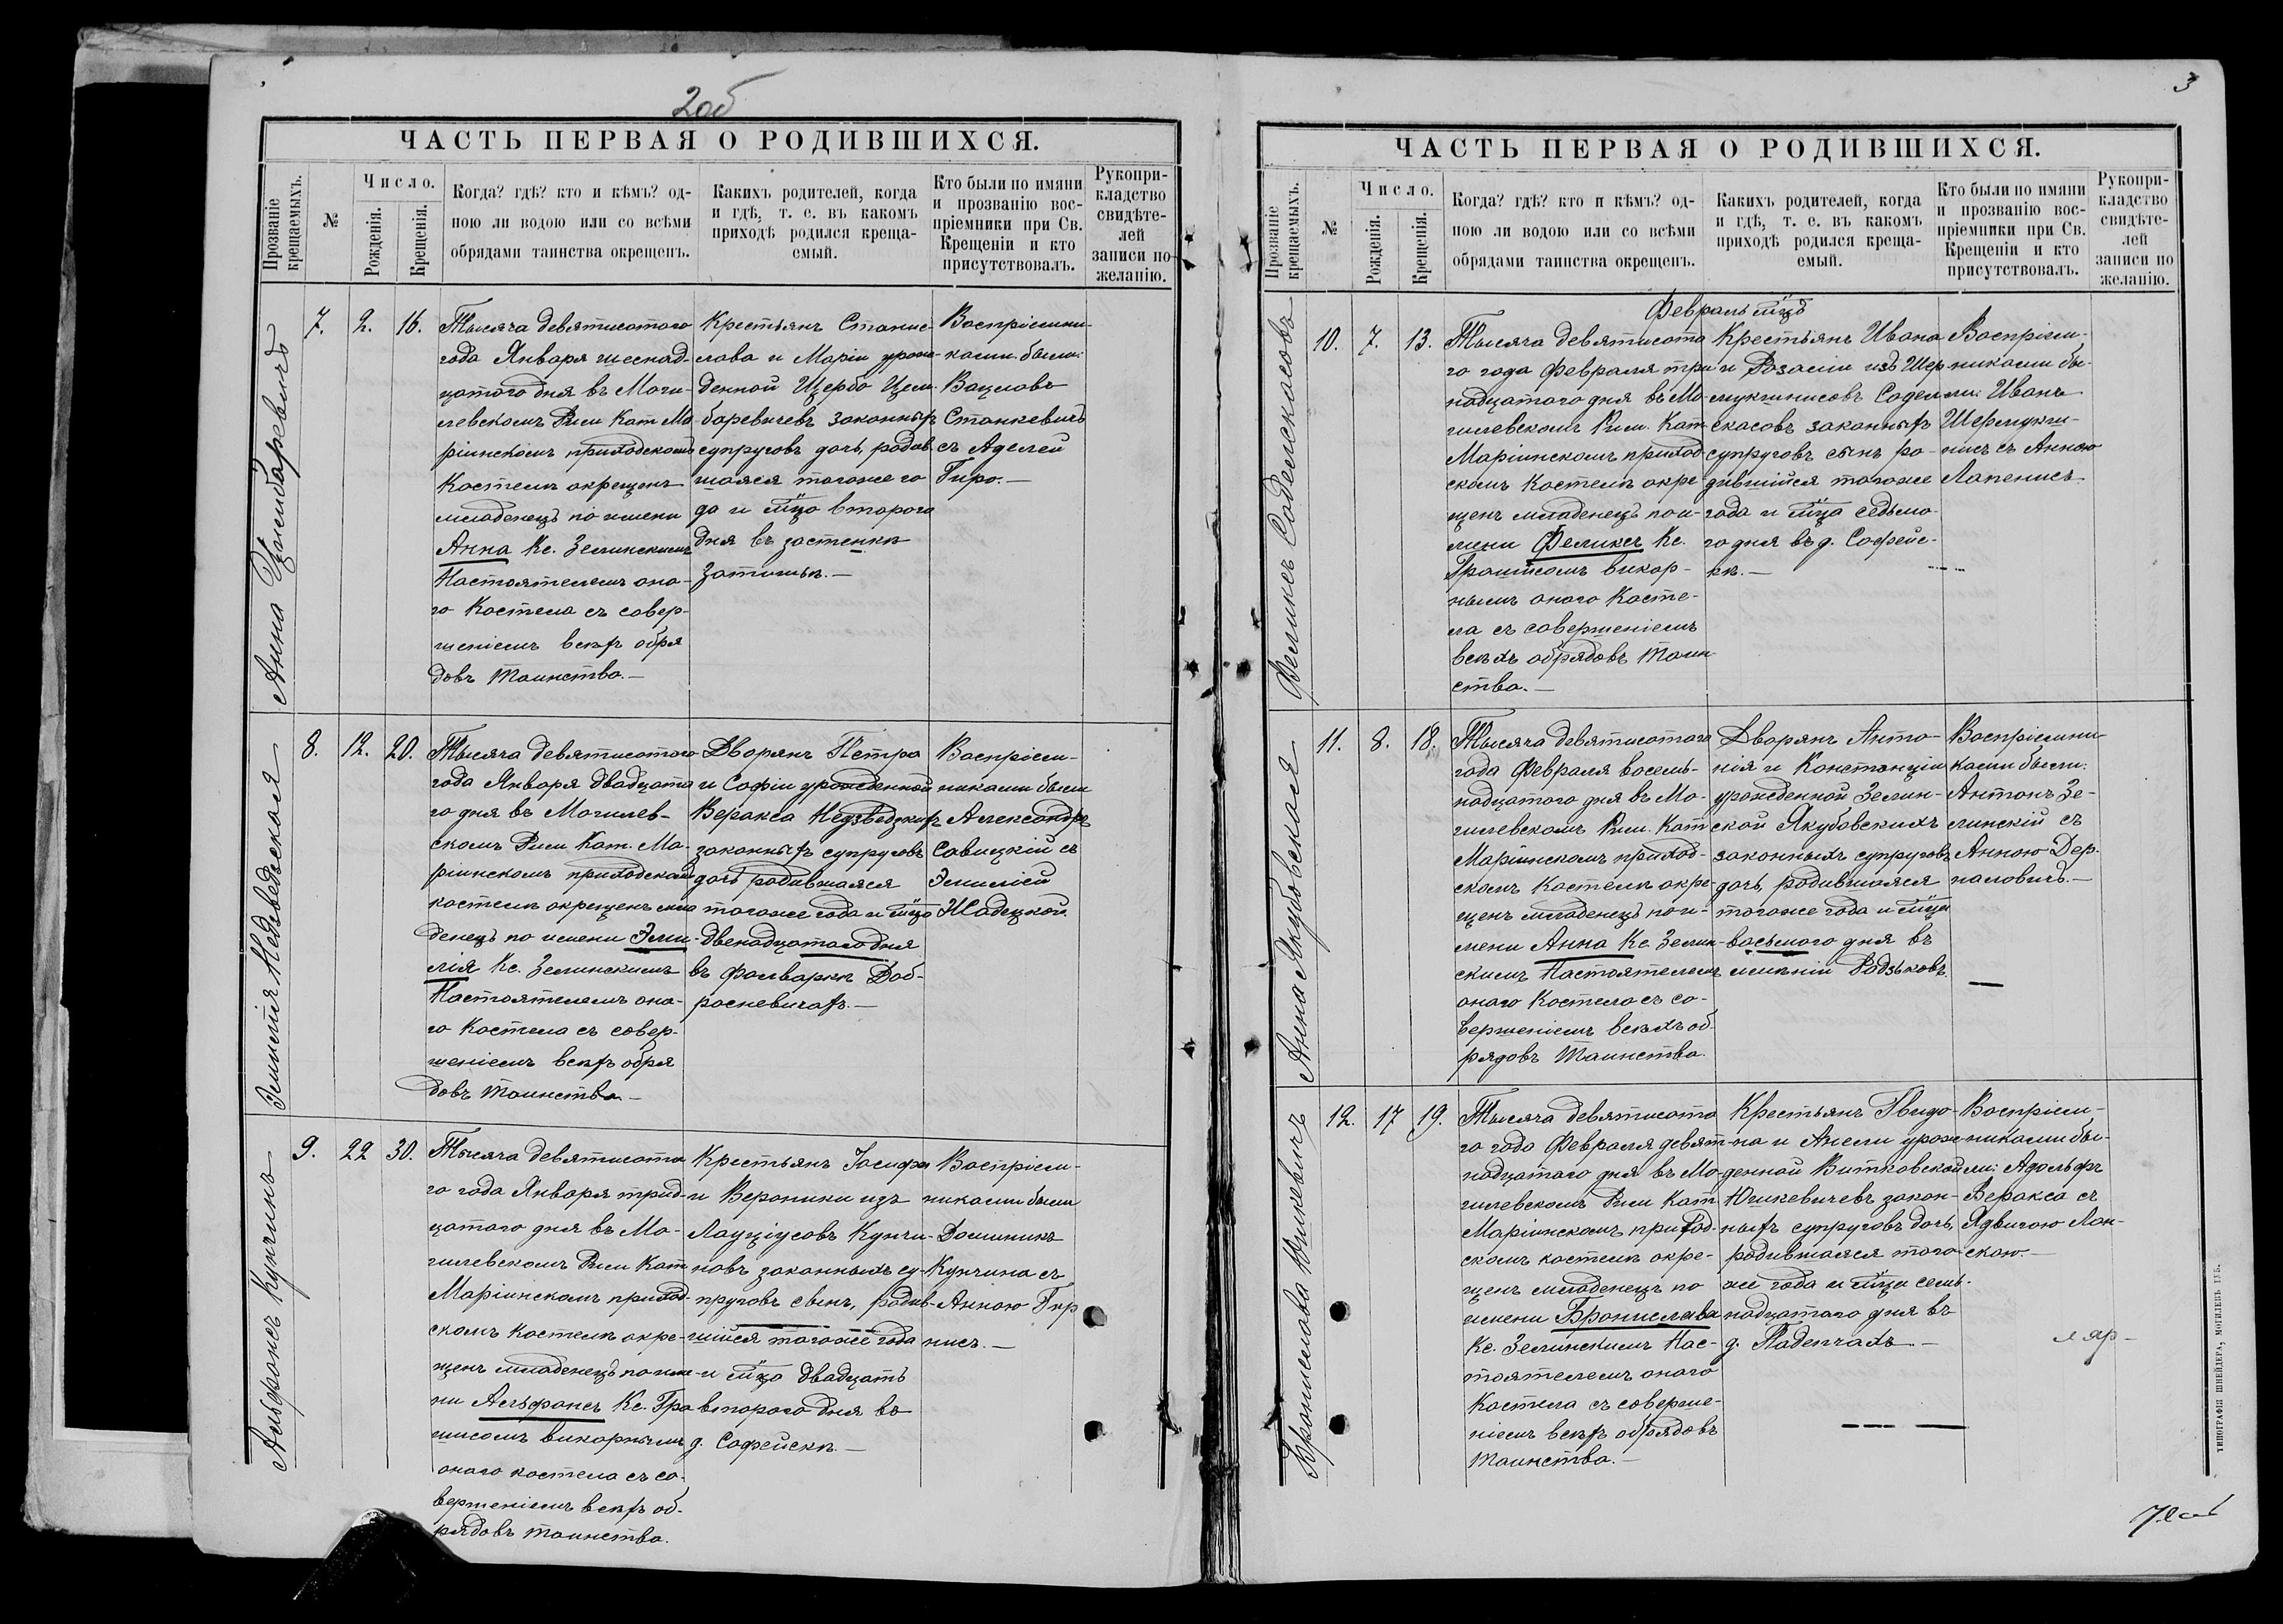 2об
ЧАСТЬ ПЕРВАЯ О РОДИВШИХСЯ.
Прозваніе крещаемыхъ.
№
Число.
Рожденія.
Крещенія.
Когда? гдѣ? кто и кѣмъ? од-
ною ли водою или со всѣми
обрядами таинства окрещенъ.
Какихъ родителей, когда
и гдѣ, т. е. въ какомъ
приходѣ родился креща-
емый.
Кто были по имяни
и прозванію вос-
пріемники при Св.
Крещеніи и кто
присутствовалъ.
Рукопри-
кладство
свидѣте-
лей
записи по
желанію.
Анна Цымбаревичъ
7.
2.
16.
Тысяча девятисотого
года Января шеснад-
цатого дня въ Моги-
левскомъ Рим Кат Ма
ріинскомъ приходскомъ
Костелѣ окрещенъ
младенецъ по имени
Анна Кс. Зелинскимъ
Настоятелемъ она-
го Костела съ совер-
шеніемъ всѣхъ обря
довъ Таинства.—
Крестьянъ Станис-
лава и Маріи урож-
денной Щербо Цым-
баревичевъ законныхъ
супруговъ дочь, родив-
шаяся тогоже го
да и мца второго
дня въ застенкѣ
Затишьѣ.—
Воспріемни-
ками были:
Вацлавъ
Станкевичъ
съ Аделей
Гиро.—
Эмилія Недзведзская
8.
12.
20.
Тысяча девятисотого
года Января двадцата
го дня въ Могилев-
скомъ Рим Кат. Ма-
ріинскомъ приходском
костелѣ окрещенъ мла
денецъ по имени Эми-
лія Кс. Зелинскимъ
Настоятелемъ она-
го Костела съ совер-
шеніемъ всѣхъ обря
довъ Таинства.—
Дворянъ Петра
и Софіи урожденной
Веракса Недзведзкихъ
законныхъ супруговъ
дочь родившаяся
тогоже года и мца
двенадцатого дня
въ фольваркѣ Доб-
росневичахъ.—
Воспріем-
никами были
Александръ
Савицкій съ
Эмиліей
Жадецкой.
Альфонсъ Кунчинъ
9.
22
30.
Тысяча девятисота
го года Января трид-
цатого дня въ Мо-
гилевскомъ Рим Кат
Маріинскомъ приход-
скомъ Костелѣ окре-
щенъ младенецъ по име-
ни Альфонсъ Кс. Гра
шисомъ викарнымъ
онаго костела съ со-
вершеніемъ всѣхъ об-
рядовъ таинства.
Крестьянъ Іосифа
и Вероники изъ
Лауціусовъ Кунчи-
новъ законныхъ су-
пруговъ сынъ, родив-
шійся тогоже года
и мца двадцать
второго дня въ
д. Софейскѣ.—
Воспріем-
никами были
Доминикъ
Кунчина съ
Анною Гир
нисъ.—
3
ЧАСТЬ ПЕРВАЯ О РОДИВШИХСЯ.
Прозваніе крещаемыхъ.
№
Число.
Рожденія.
Крещенія.
Когда? гдѣ? кто и кѣмъ? од-
ною ли водою или со всѣми
обрядами таинства окрещенъ.
Какихъ родителей, когда
и гдѣ, т. е. въ какомъ
приходѣ родился креща-
емый.
Кто были по имяни
и прозванію вос-
пріемники при Св.
Крещеніи и кто
присутствовалъ.
Рукопри-
кладство
свидѣте-
лей
записи по
желанію.
Февраль мцъ
Феликсъ Соделскасовъ
10.
7.
13.
Тысяча девятисота
го года Февраля три
надцатого дня въ Мо-
гилевскомъ Рим. Кат
Маріинскомъ приход
скомъ Костелѣ окре
щенъ младенецъ по и-
мени Феликсъ Кс.
Грашисомъ викар-
нымъ онаго Косте-
ла съ совершеніемъ
всѣхъ обрядовъ Таин
ства.—
Крестьянъ Ивана
и Розаліи изъ Шер
мукшнисовъ Содел
скасовъ законныхъ
супруговъ сынъ ро-
дившійся тогоже
года и мца седьмо-
го дня въ д. Софейс-
кѣ.—
Воспріем-
никами бы-
ли: Иванъ
Шермукш-
нисъ съ Анною
Лапенисъ
Анна Якубовская
11.
8.
18.
Тысяча девятисотого
года Февраля восемь-
надцатого дня въ Мо-
гилевскомъ Рим. Кат
Маріинскомъ приход-
скомъ Костелѣ окре-
щенъ младенецъ по и-
мени Анна Кс Зелин-
скимъ Настоятелемъ
онаго Костела съ со-
вершеніемъ всѣхъ об-
рядовъ Таинства.
Дворянъ Анто-
нія и Констанціи
урожденной Зелин-
ской Якубовскихъ
законныхъ супруговъ
дочь, родившаяся
тогоже года и мца
восьмого дня въ
имѣніи Радзьковъ.
Воспріемни-
ками были:
Антонъ Зе-
линскій съ
Анною Дер-
паловичъ.—
Бронислава Юшкевичъ
12.
17
19.
Тысяча девятисота
го года Февраля девят-
надцатого дня въ Мо-
гилевскомъ Рим Кат
Маріинскомъ приход-
скомъ костелѣ окре-
щенъ младенецъ по
имени Бронислава
Кс. Зелинскимъ Нас-
тоятелемъ онаго
Костела съ соверше-
ніемъ всѣхъ обрядовъ
Таинства.—
Крестьянъ Гвидо-
на и Анели урож-
денной Витковской
Юшкевичевъ закон-
ныхъ супруговъ дочь,
родившаяся того
же года и мца семь-
надцатого дня въ
д. Паденчахъ.—
Воспріем-
никами бы-
ли: Адольфъ
Веракса съ
Ядвигою Лан-
скою.—
ТИПОГРАФІЯ ШНЕЙДЕРА, МОГИЛЕВЪ ГУБ.